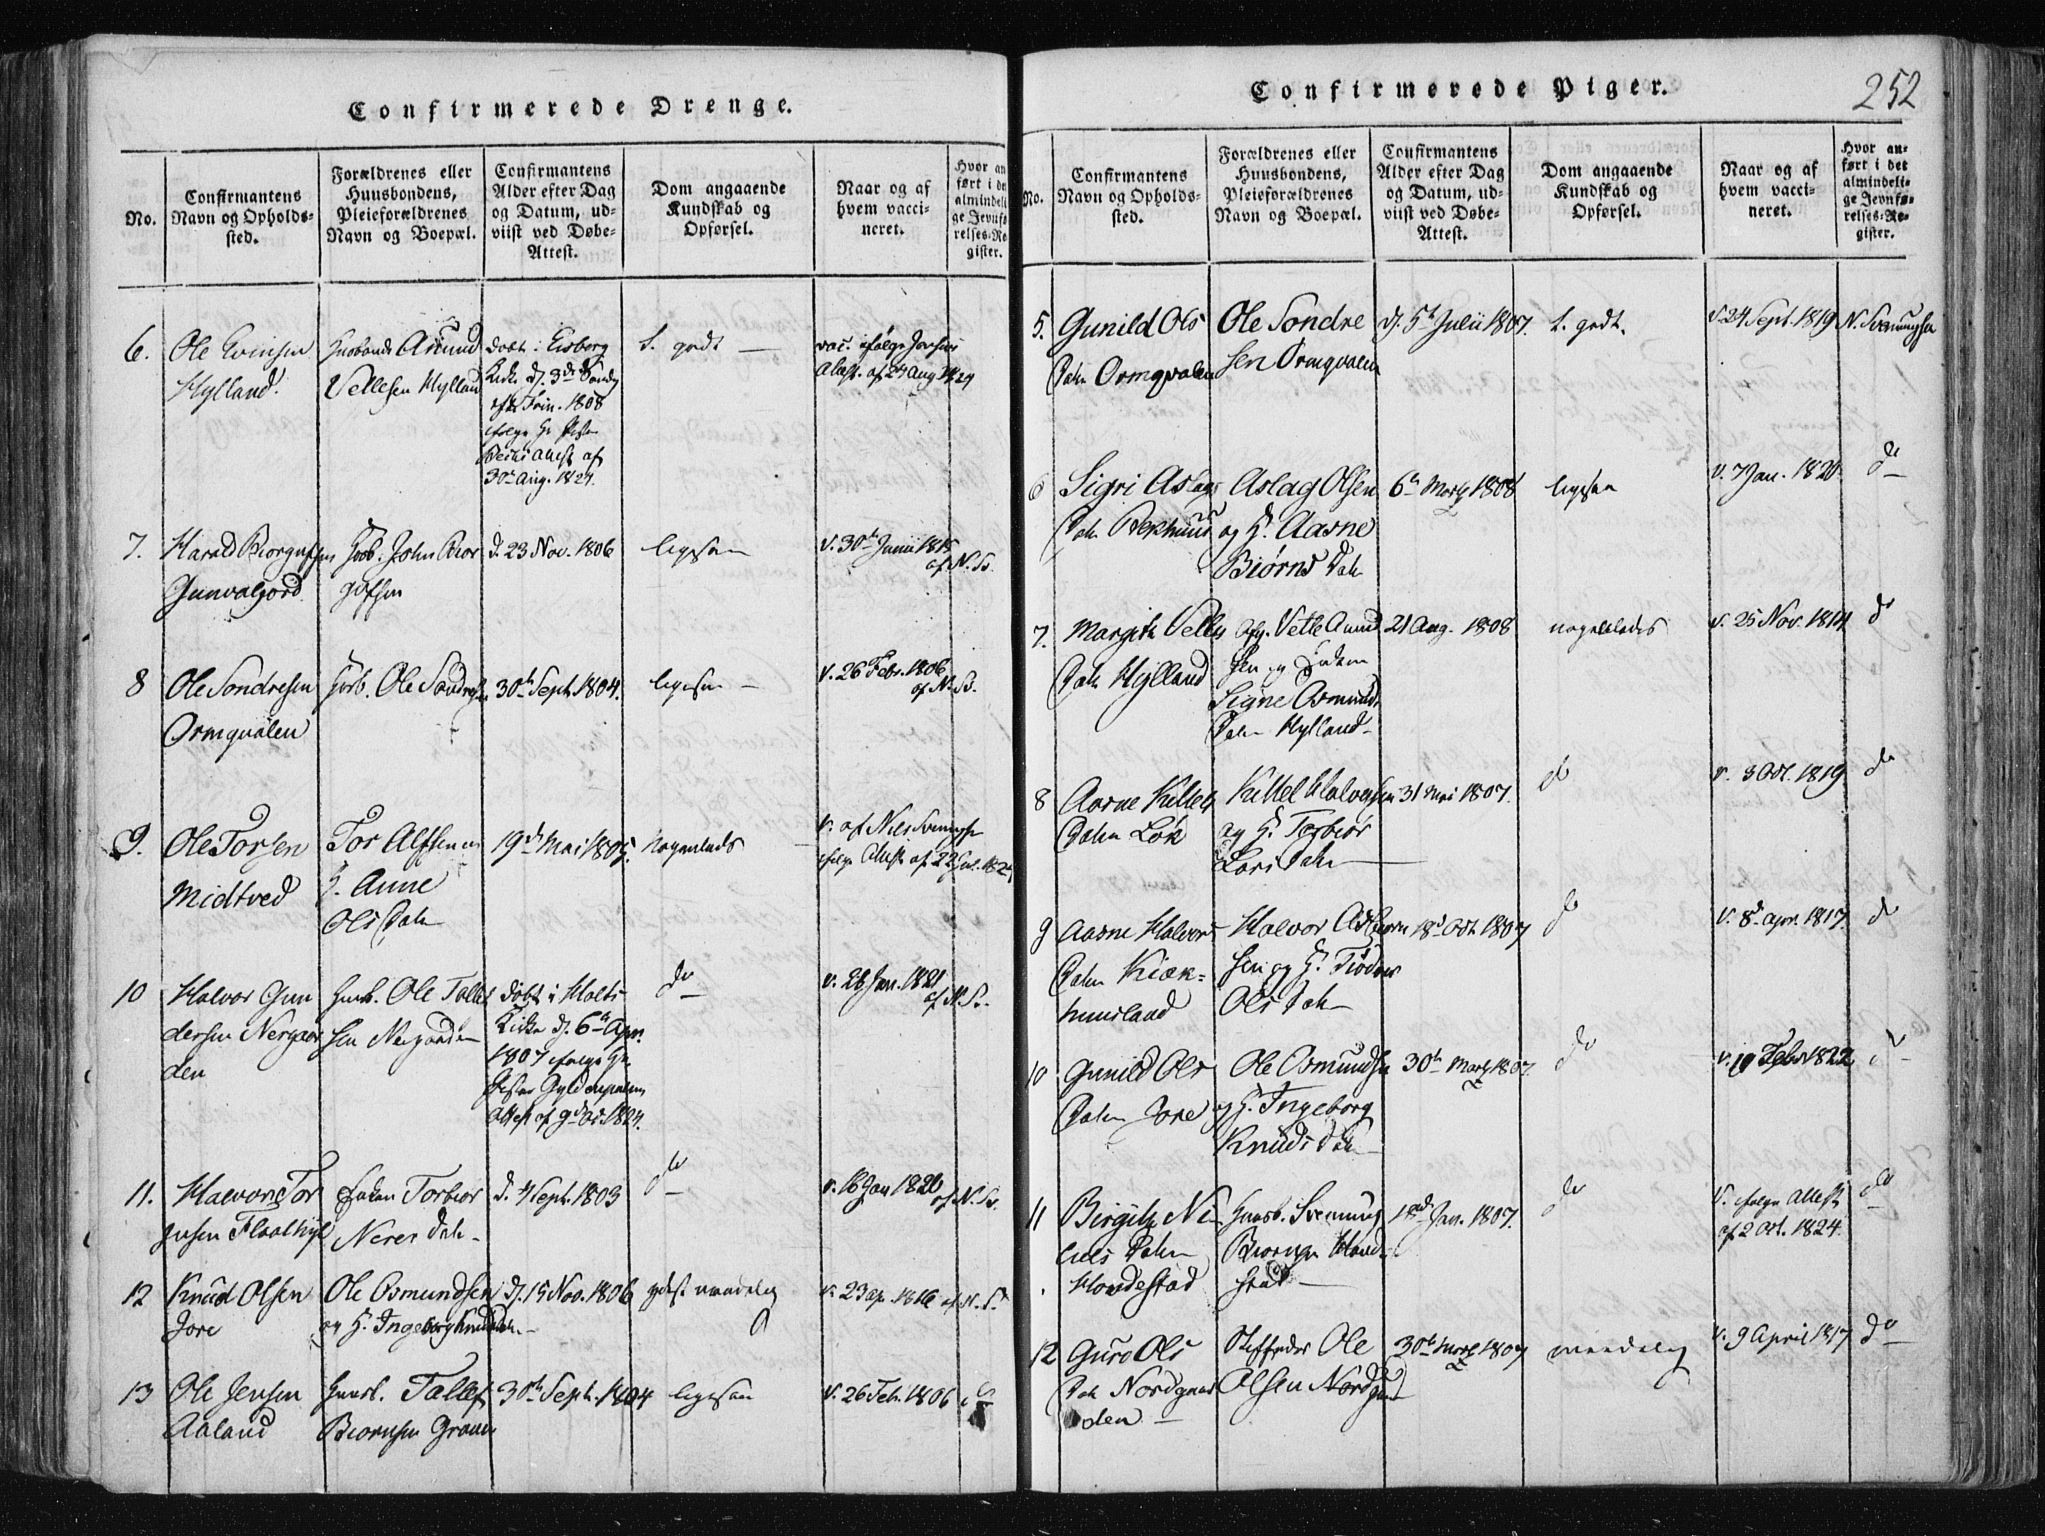 Confirmerede Drenge.
No.
Confirmantens
Navn og Opholds-
sted.
Forældrenes eller
Huusbondens,
Pleieforældrenes
Navn og Boepæl.
Confirmantens
Alder efter Dag
og Datum, ud-
viist ved Døbe-
Attest.
Dom angaaende
Kundskab og
Opførsel.
Naar og af
hvem vacci-
neret.
Hvor an
ført i de
almindeli
ge Jevnfø
relses-Re
gister.
6.
Ole Evinsen
Hylland.
Husbonde Asmund
Vetlesen Hylland
døbt i Eisborg
Kirke d. 3de Søndag
efter Trin. 1808
ifølge Hr.
attest af
30te Aug. 1824.
t. godt —
vac. ifølge Jensens
attest af 24 Aug 1824
7.
Harald Biorgufsen
Gunvaljord
Husb. John Bior
gufsen
d. 23 Nov. 1806
ligesaa
v. 30te Junii 1815
af N. Sv.
8
Ole Sondresen
Ormqvalen
Husb. Ole Sondresen
30te Sept. 1804.
ligesaa —
v. 26 Febr. 1806
af N. Sv.
9.
Ole Torsen
Midtved
Tor Alfsen og
H. Anne
Ols Datr
19de Mai 1805.
Nogenleds
v. af Niels Svenungsen
ifølge Attest af 22 1824
10
Halvor Gun
dersen Nergaar
den
Husb. Ole Tallef
sen Nergarden
døbt i Holts
Kirke d. 6te Apr.
1807 ifølge Hr.
Attest af 9de Oct 1824.
do
v. 28 Jan. 1821
af N. Sv.
11.
Halvor Tor
gusen Flaathyl
Enken Torbiør
Neres Datr
d. 4 Sept. 1803
do
v. 18 Jan 1820
af N. Sv.
12
Knud Olsen
Jore
Ole Osmundsen
og H. Ingeborg Knuds Datr
d. 15 Nov. 1806
maadelig
v. 23 ap. 1816 af N. S.
13
Ole Jensen
Aaland
Huusb. Tallef
Biornsen Graver
30te Sept. 1804
ligesaa
v. 26 Feb. 1806
Confirmerede Piger.
252
No.
Confirmantens
Navn og Opholds-
sted.
Forældrenes eller
Huusbondens,
Pleieforældrenes
Navn og Boepæl.
Confirmantens
Alder efter Dag
og Datum, ud-
viist ved Døbe-
Attest.
Dom angaaende
Kundskab og
Opførsel.
Naar og af
hvem vacci-
neret.
Hvor an-
ført i det
almindeli-
ge Jevnfø-
relses-Re-
gister.
5.
Gunild Ols
Datr Ormqvalen
Ole Sondre
sen Ormqvalen
d. 5te Julii 1807.
t. godt.
v 24 Sept. 1819
N. Svenungsen
6
Sigri Aslags
Datr Bekhuus
Aslag Olsen
og H. Aasne
Biørns Datr
6te Martz 1808
ligesaa
v. 7 Jan. 1820.
do
7.
Margith Vetles
Datr Hylland
Afg. Vetle Amund
sen og Enken
Signe Osmunds
Datr Hylland
21 Aug. 1808
nogenleds
v. 25 Nov. 1814
do
8
Aasne Kittels
Datr Løk
Kittel Halvorsen
og H. Torbiør
Lars Datr
31 Mai 1807.
do
v. 3 Oct. 1819
do
9
Aasne Halvors
Datr Kiæk-
huusland
Halvor Asbiorn
sen og H. Tiøder
Ols Datr
18de Oct. 1807
do
v. 8de apr. 1817.
do
10
Gunild Ols
Datr Jore
Ole Osmundsen
og H. Ingeborg
Knuds Datr
30te Martz 1807.
do
v. 19 Febr 1822
do
11
Birgith Ni
Datr
Hovdestad
Huusb. Svenung
Biornsen Hovde
stad
1ste Jan. 1807.
do
v. ifølge attest
af 2 Oct. 1824.
do
12
Guro Ols
Datr Nordgaar
den
Stiffader Ole
Olsen Nordgaard
30te Martz 1807
maadelig
v. 9 April 1817
do